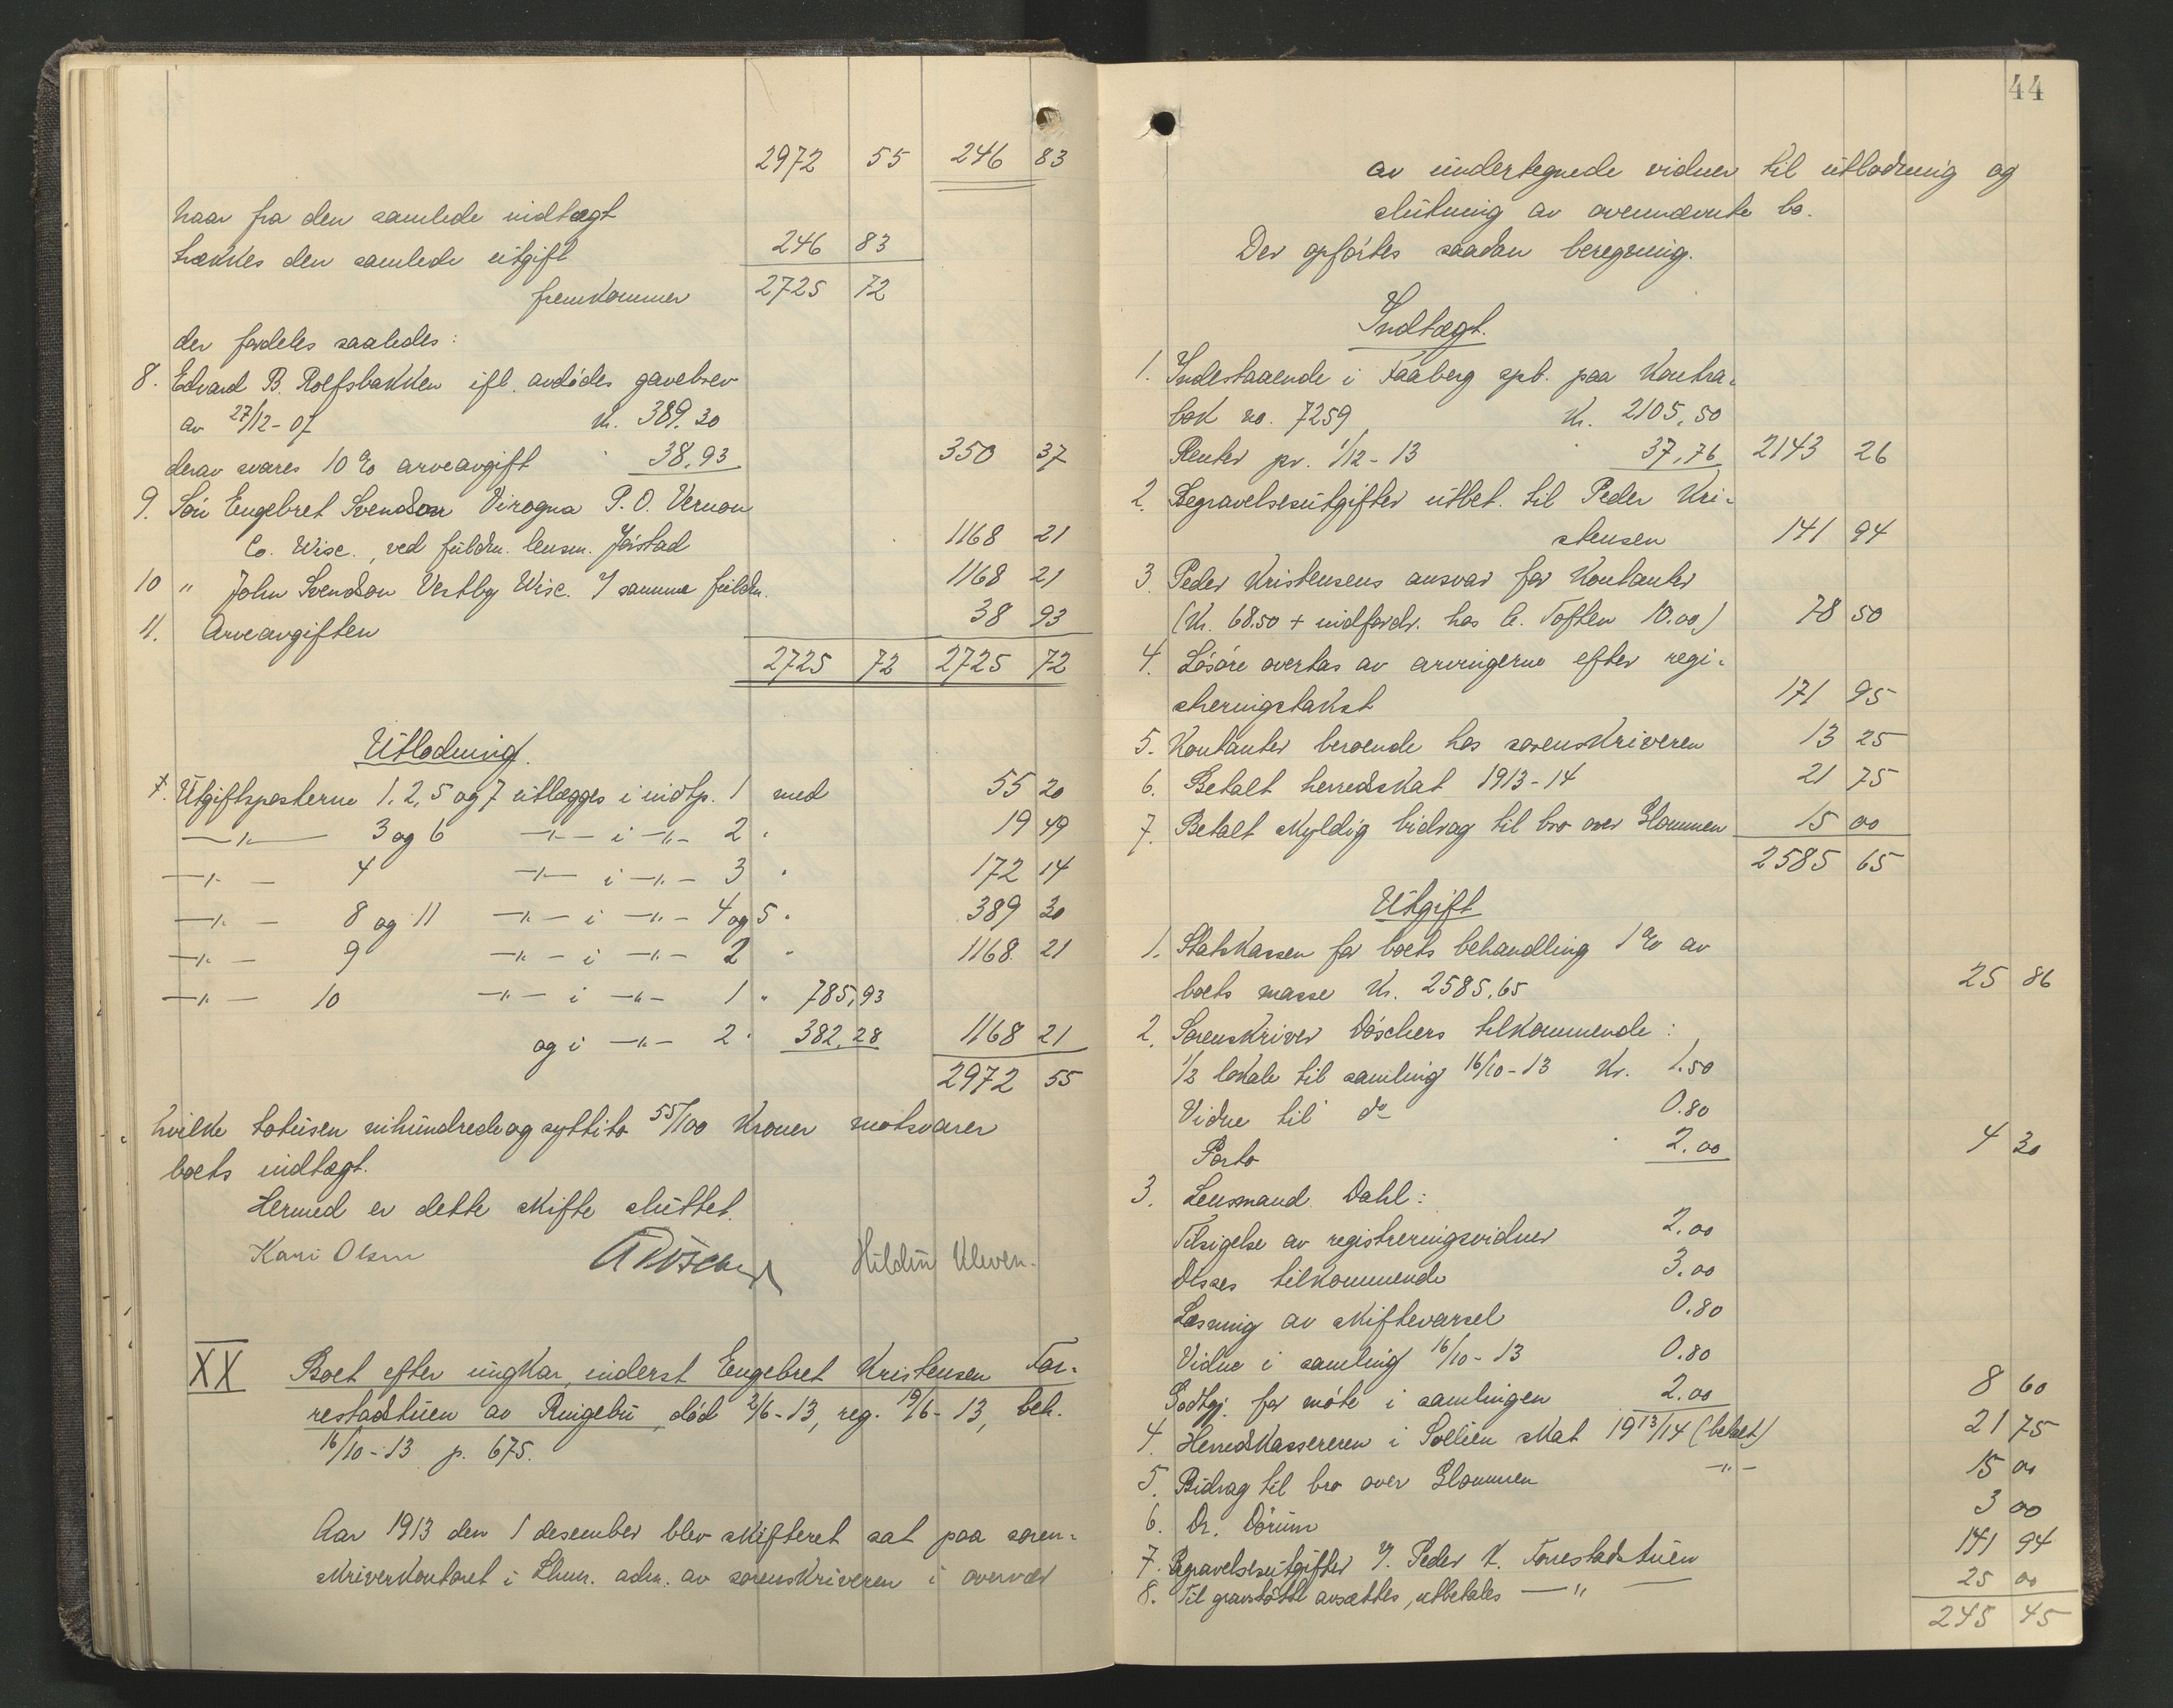 2972 55 246 83
naar fra den samlede indtægt
trækkes den samlede utgift 246 83
fremkommer 2725 72
der fordeles saaledes:
8. Edvard B. Rolfsbakken ifl. avdødes gavebrev
av 27/12-07 Kr. 389.30
derav svares 10 % arveavgift 38.93 350 37
9. Søn Engebret Svendson Viroqua P.O. Vernon
Co. Wisc., ved fuldm. lensm. Jøistad 1168 21
10 " John Svendson Vestby Wisc. v/ samme fuldm. 1168 21
11. Arveavgiften 38 93
2725 72 2725 72
Utlodning.
Utgiftsposterne 1, 2, 5 og 7 utlægges i indtp. 1 med 55 20
—"— 3 og 6 —"— i —"— 2 " 19 49
—"— 4 —"— i —"— 3 " 172 14
—"— 8 og 11 —"— i —"— 4 og 5 " 389 30
—"— 9 —"— i —"— 2 " 1168 21
—"— 10 —"— i —"— 1 " 785,93
og i —"— 2 " 382,28 1168 21
2972 55
hvilke totusen nihundredeogsyttito 55/100 Kroner motsvarer
boets indtægt.
Hermed er dette skifte sluttet.
Kari Olsen Hildur Kleven.
XX Boet efter ungkar, inderst Engebret Kristensen For-
restadstuen av Ringebu, død 2/6-13, reg. 19/6-13, beh.
16/10-13 p. 675.
Aar 1913 den 1 desember blev skifteret sat paa soren-
skriverkontoret i Lhmr. adm. av sorenskriveren i overvær
44
av undertegnede vidner til utlodning og
slutning av ovennævnte bo.
Der opførtes saadan beregning.
Indtægt.
1. Indestaaende i Faaberg spb. paa Kontra-
bok no. 7259 Kr. 2105,50
Renter pr. 1/12-13 37,76 2143 26
2. Begravelsesutgifter utbet. til Peder Kri-
stensen 141 94
3 Peder Kristensens ansvar for Kontanter
(Kr. 68.50 + indfordr. hos C. Toften 10.00) 78 50
4. Løsøre overtas av arvingerne efter regi-
streringstakst 171 95
5. Kontanter beroende hos sorenskriveren 13 25
6. Betalt herredskat 1913-14 21 75
7. Betalt skyldig bidrag til bro over Glommen 15 00
2585 65
Utgift
1. Statskassen for boets behandling 1 % av
boets masse Kr. 2585,65 25 86
2. Sorenskriver Døschers tilkommende:
1/2 lokale til samling 16/10-13 Kr. 1.50
Vidne til do 0.80
Porto 2.00 4 30
3. Lensmand Dahl:
Tilsigelse av registreringsvidner 2.00
Disses tilkommende 3.00
Læsning av skiftevarsel 0.80
Vidne i samling 16/10-13 0.80
Godtgj. for møte i samlingen 2.00 8 60
4. Herredskassereren i Sollien skat 1913/14 (betalt) 21 75
5. Bidrag til bro over Glommen —"— 15 00
6. Dr. Dørum 3 00
7. Begravelsesutgifter v/. Peder K. Forrestadstuen 141 94
8. Til gravstøtte avsættes, utbetales —"— 25 00
245 45